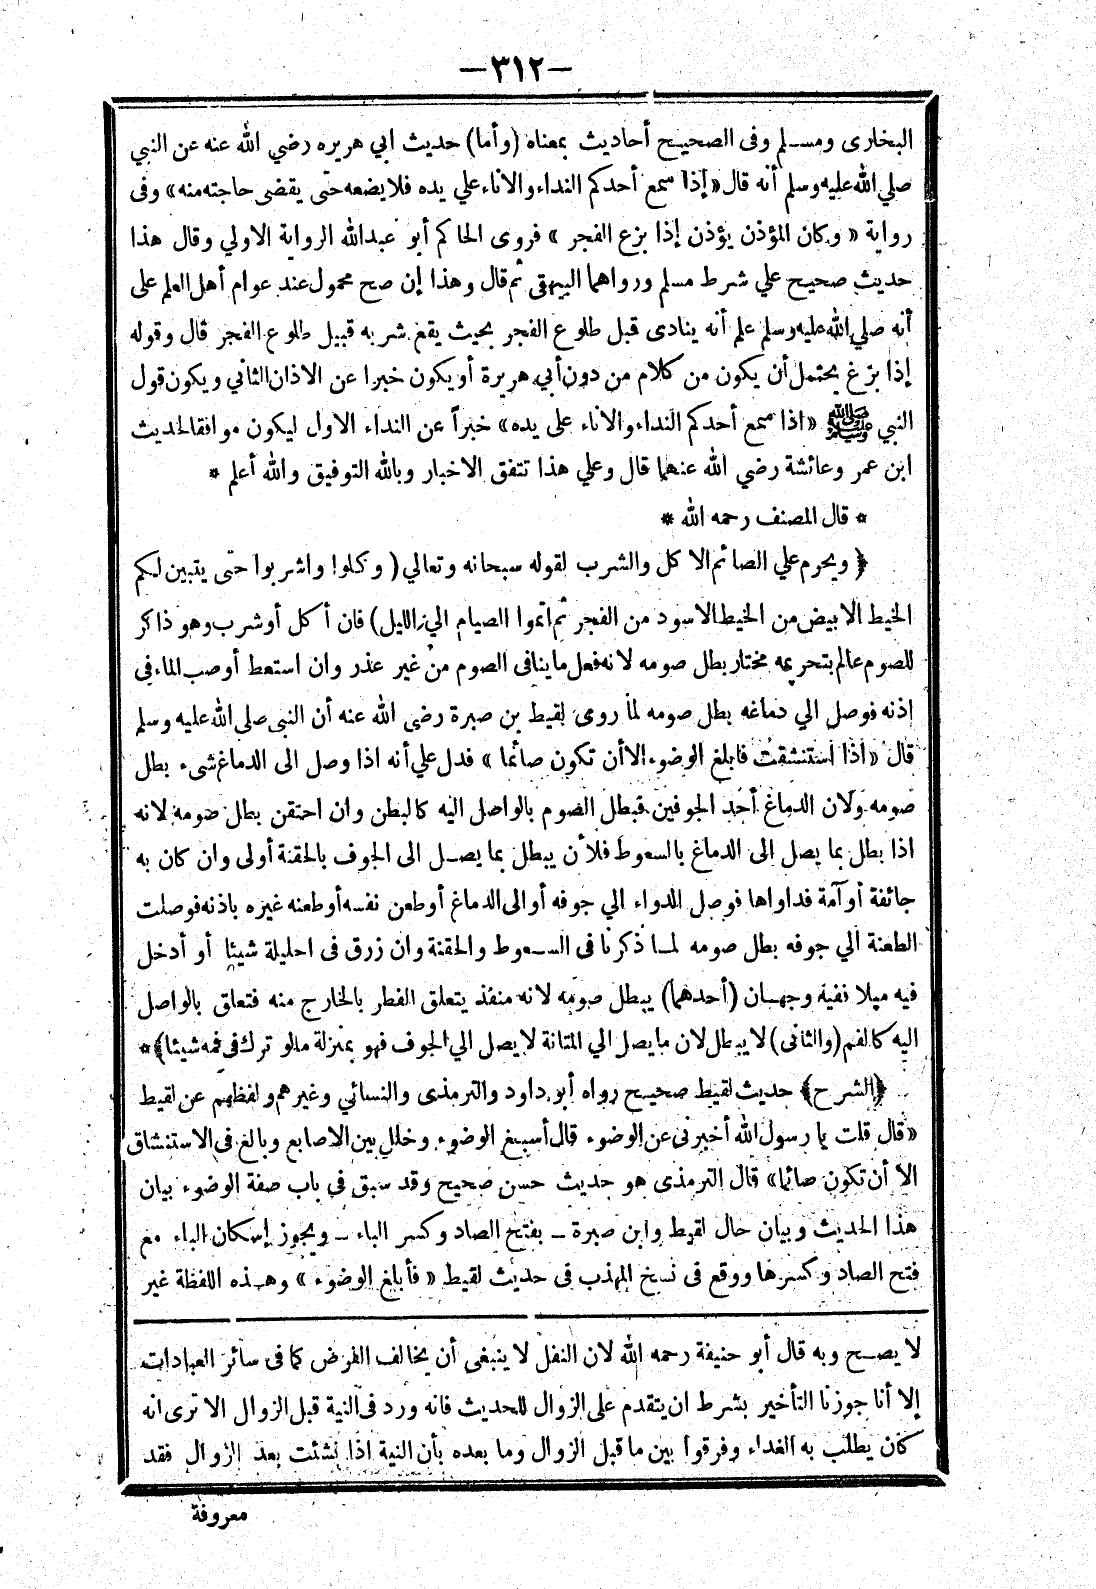 —٣١٢—
البخارى ومسلم وفى الصحيح أحاديث بمعناه (وأما) حديث ابي هريره رضي الله عنه عن النبي
صلي الله عليه وسلم أنه قال «إذا سمع أحدكم النداء والاناء علي يده فلا يضعه حتى يقضى حاجته منه» وفى
رواية « وكان المؤذن يؤذن إذا بزغ الفجر » فروى الحاكم أبو عبدالله الرواية الاولي وقال هذا
حديث صحيح علي شرط مسلم ورواهما البيهقى ثم قال وهذا إن صح محمول عند عوام أهل العلم على
أنه صلي الله عليه وسلم علم أنه ينادى قبل طلوع الفجر بحيث يقع شربه قبيل طلوع الفجر قال وقوله
إذا بزغ يحتمل أن يكون من كلام من دون أبي هريرة أو يكون خبرا عن الاذان الثاني ويكون قول
النبي ﷺ «اذا سمع أحدكم النداء والاناء على يده» خبراً عن النداء الاول ليكون موافقا لحديث
ابن عمر وعائشة رضي الله عنهما قال وعلي هذا تتفق الاخبار وبالله التوفيق والله أعلم *
* قال المصنف رحمه الله *
﴿ ويحرم علي الصائم الاكل والشرب لقوله سبحانه وتعالي ( وكلوا واشربوا حتى يتبين لكم
الخيط الابيض من الخيط الاسود من الفجر ثم اتموا الصيام الي الليل) فان أكل أو شرب وهو ذاكر
للصوم عالم بتحريمه مختار بطل صومه لانه فعل ما ينافى الصوم من غير عذر وان استعط أو صب الماء في
اذنه فوصل الي دماغه بطل صومه لما روى لقيط بن صبرة رضى الله عنه أن النبى صلى الله عليه وسلم
قال « اذا استنشقت فابلغ الوضوء الا أن تكون صائما » فدل علي أنه اذا وصل الى الدماغ شىء بطل
صومه ولان الدماغ أحد الجوفين فبطل الصوم بالواصل اليه كالبطن وان احتقن بطل صومه لانه
اذا بطل بما يصل الى الدماغ بالسعوط فلأن يبطل بما يصل الى الجوف بالحقنة أولى وان كان به
جائفة أو آمة فداواها فوصل الدواء الي جوفه أو الى الدماغ أو طعن نفسه أو طعنه غيره باذنه فوصلت
الطعنة الي جوفه بطل صومه لما ذكرنا فى السعوط والحقنة وان زرق فى احليلة شيئا أو أدخل
فيه ميلا نفيه وجهان (أحدهما) يبطل صومه لانه منفذ يتعلق الفطر بالخارج منه فتعلق بالواصل
اليه كالفم (والثانى) لا يبطل لان ما يصل الي المثانة لا يصل الي الجوف فهو بمنزلة مالو ترك فى فمه شيئا﴾*
﴿الشرح﴾ حديث لقيط صحيح رواه أبو داود والترمذى والنسائي وغيرهم ولفظهم عن لقيط
«قال قلت يا رسول الله أخبرنى عن الوضوء قال أسبغ الوضوء وخلل بين الاصابع وبالغ فى الاستنشاق
الا أن تكون صائما» قال الترمذى هو حديث حسن صحيح وقد سبق في باب صفة الوضوء بيان
هذا الحديث وبيان حال لقيط وابن صبرة ــ بفتح الصاد وكسر الباء ــ ويجوز إسكان الباء مع
فتح الصاد وكسرها ووقع فى نسخ المهذب فى حديث لقيط « فأبلغ الوضوء » وهذه اللفظة غير
لا يصح وبه قال أبو حنيفة رحمه الله لان النفل لا ينبغى أن يخالف الفرض كما فى سائر العبادات
إلا أنا جوزنا التأخير بشرط ان يتقدم على الزوال للحديث فانه ورد فى النية قبل الزوال الا ترى انه
كان يطلب به الغداء وفرقوا بين ما قبل الزوال وما بعده بأن النية اذا نشئت بعد الزوال فقد
معروفة